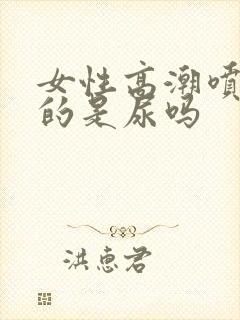 女性高潮喷
的是尿吗
洪惠君